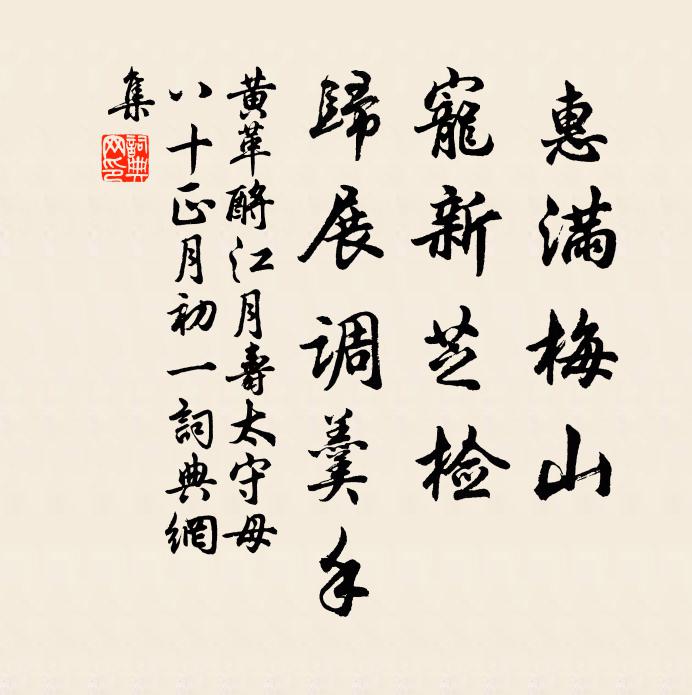 惠满梅山
寵新芝检
歸展调羹手
黄革酹江月壽太守母
八十正月初一詞典網
集
詞典网印